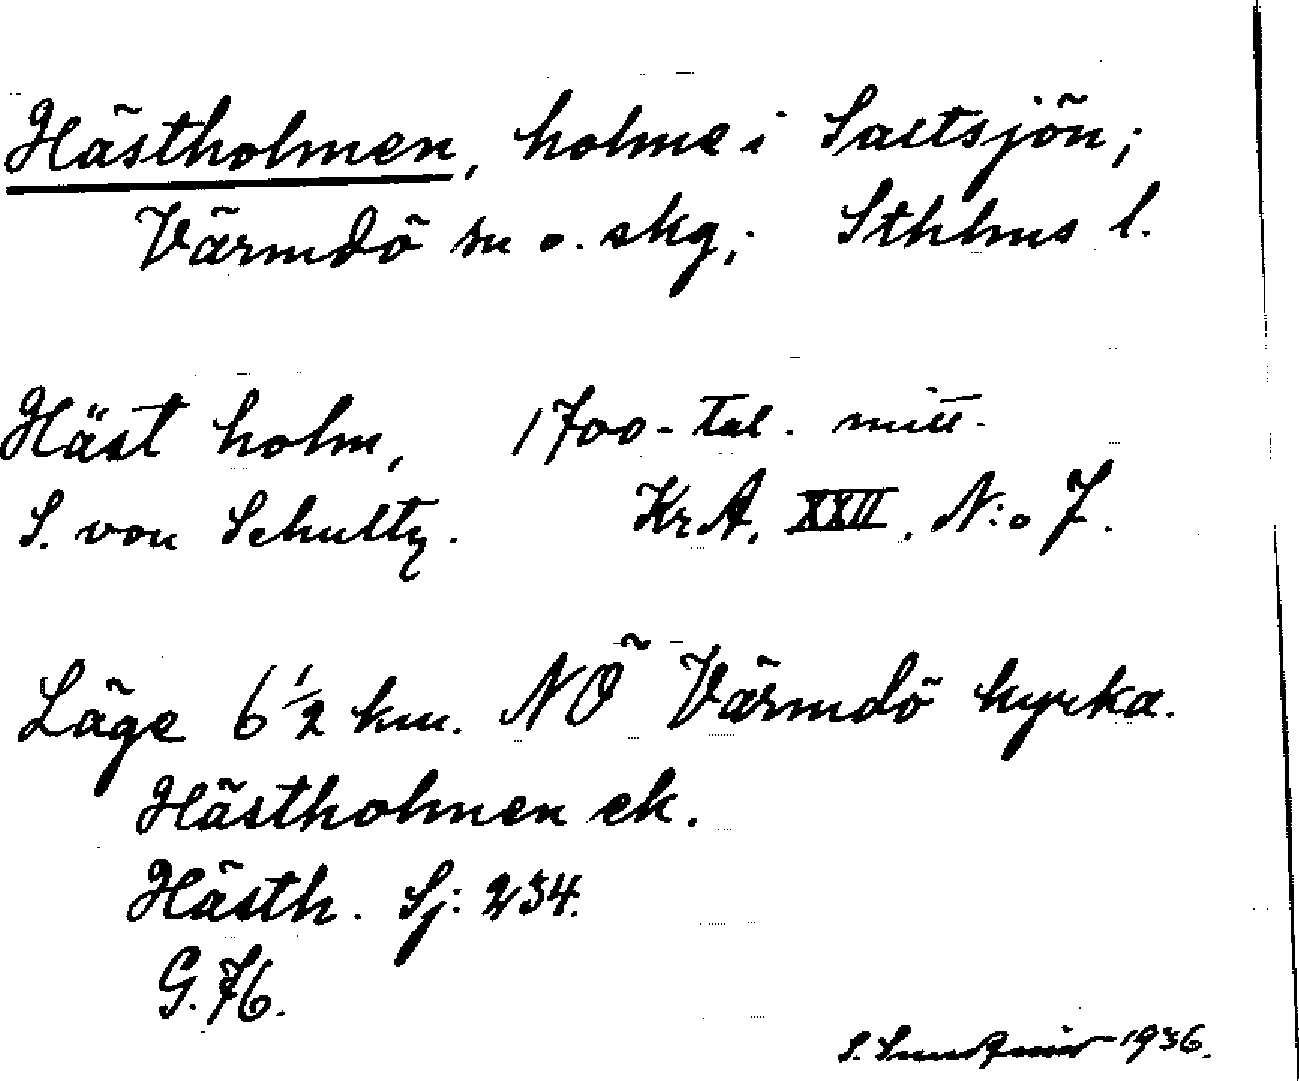 Hästholmen, holme i Saltsjön;
Värmdö sn o. skg; Sthlms l.
Häst holm, 1700-tal. mitt.
S. von Schultz. KrA, XXII, N:o 7.
Läge 6 1/2 km. NÖ Värmdö kyrka.
Hästholmen ek.
Hästh. Sj: 234.
G. 76.
S. 1936.